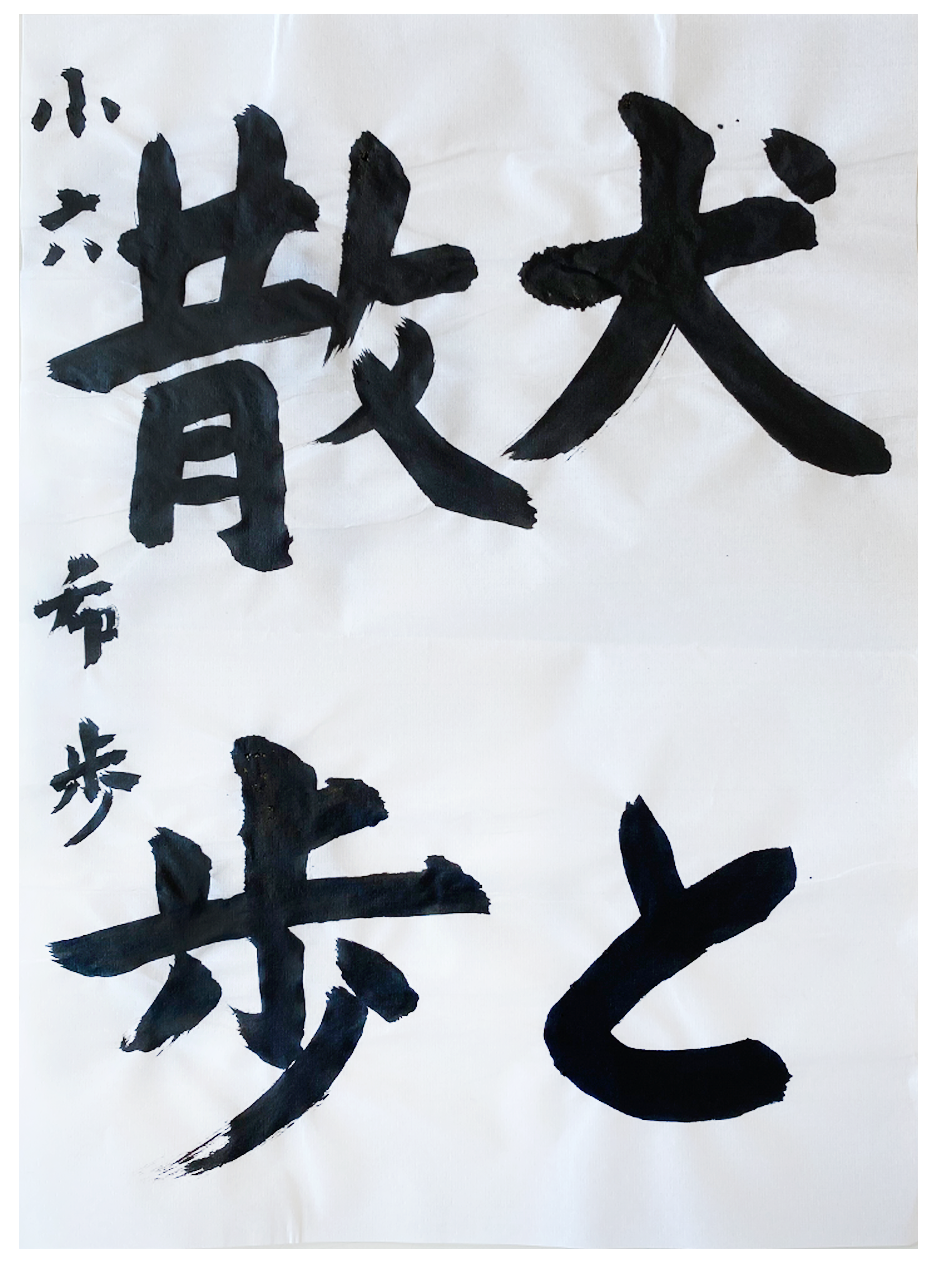 犬と
散歩
小六 布歩